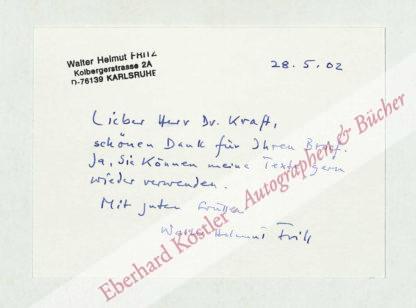 Walter Helmut FRITZ
Kolbergerstrasse 2A
D-76139 KARLSRUHE
28.5.02
Lieber Herr Dr. Kraft,
schönen Dank für Ihren Brief.
Ja, Sie können meine Texte gern
wieder verwenden.
Mit guten Grüßen
Walter Helmut Fritz
Eberhard Köstler - Autographen & Bücher